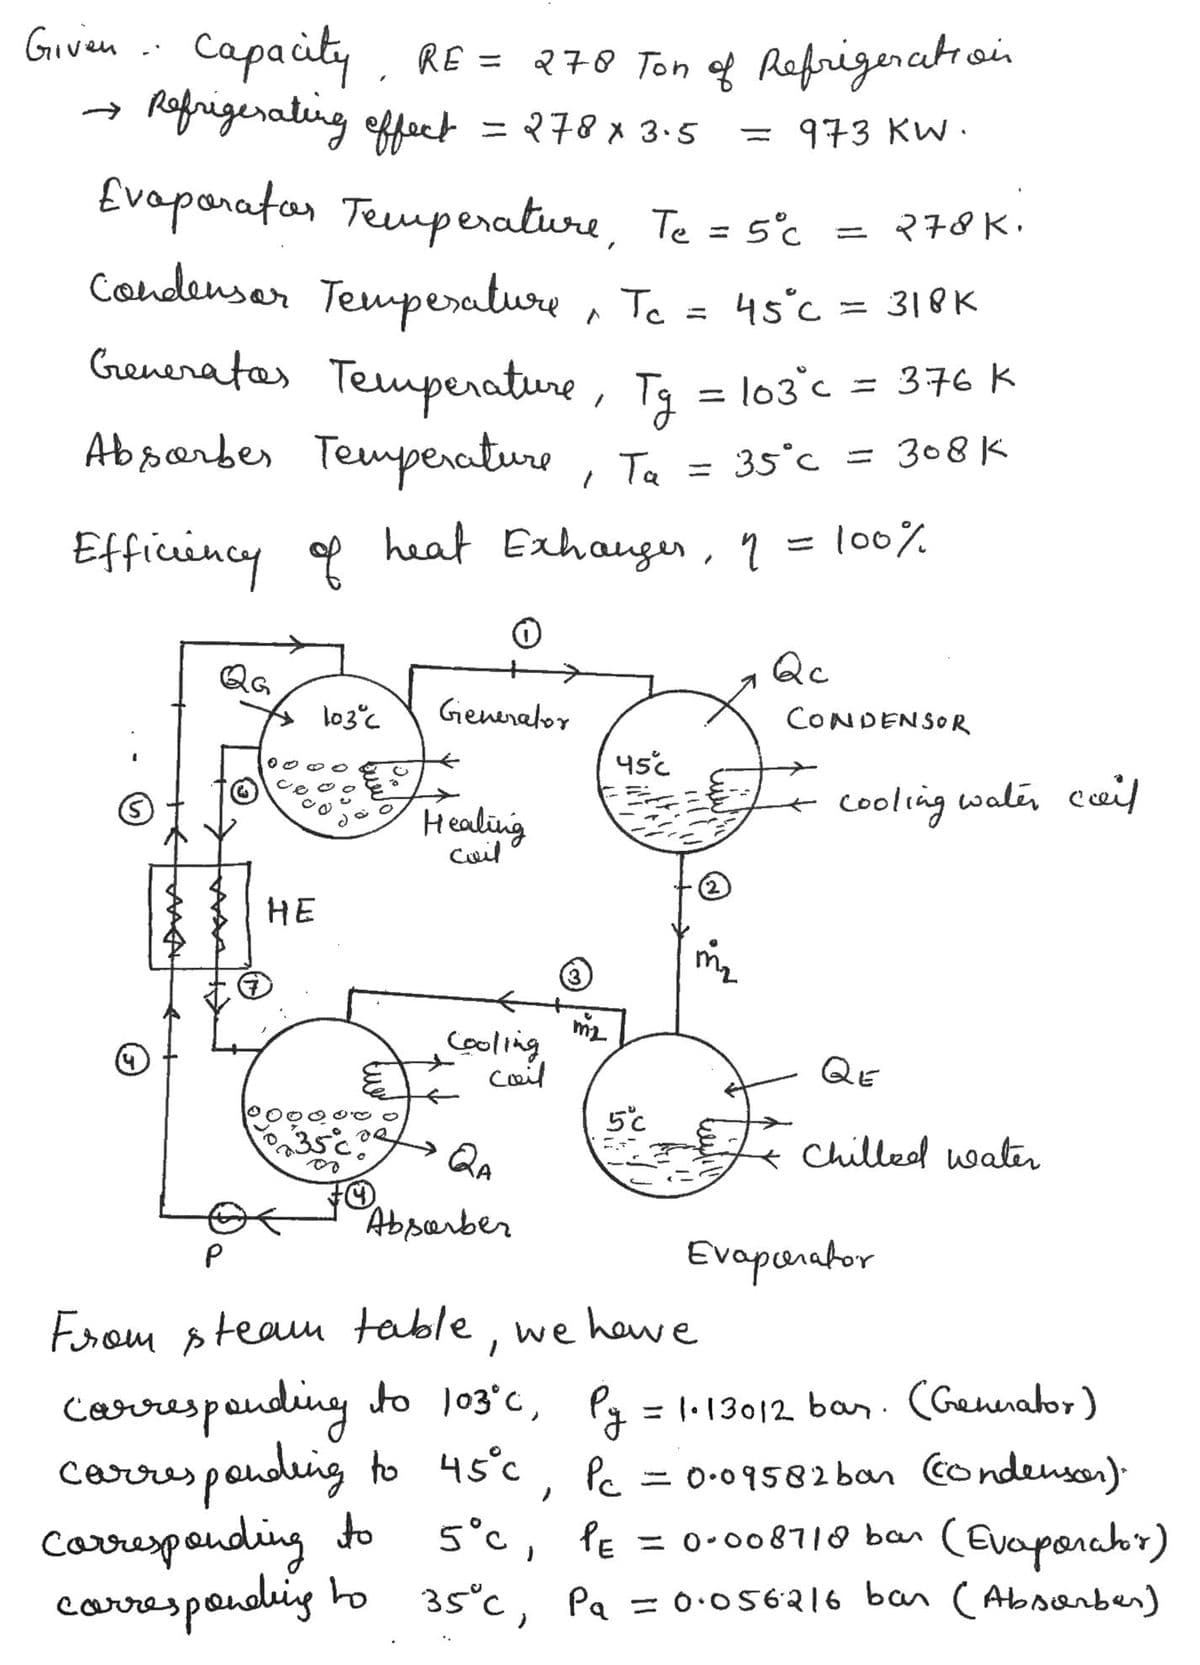 Given :- Capacity, RE = 278 Ton of Refrigeration
→ Refrigerating effect = 278 x 3.5 = 973 KW.
Evaporator Temperature, Te = 5°C = 278K.
Condensor Temperature, Tc = 45°C = 318K
Generator Temperature, Tg = 103°C = 376 K
Absorber Temperature, Ta = 35°C = 308K
Efficiency of heat Exhanger, η = 100%
①
QG
QC
103°C
Generator
CONDENSOR
45°C
⑤
⑥
cooling water coil
Heating
coil
②
HE
ṁ2
③
⑦
ṁ2
Cooling
coil
④
QE
5°C
35°C
Chilled water
QA
④
Absorber
P
Evaporator
From steam table, we have
corresponding to 103°C, Pg = 1.13012 bar. (Generator)
corresponding to 45°C, Pc = 0.09582 bar (Condensor).
corresponding to 5°C, PE = 0.008718 bar (Evaporator)
corresponding to 35°C, Pa = 0.056216 bar (Absorber)